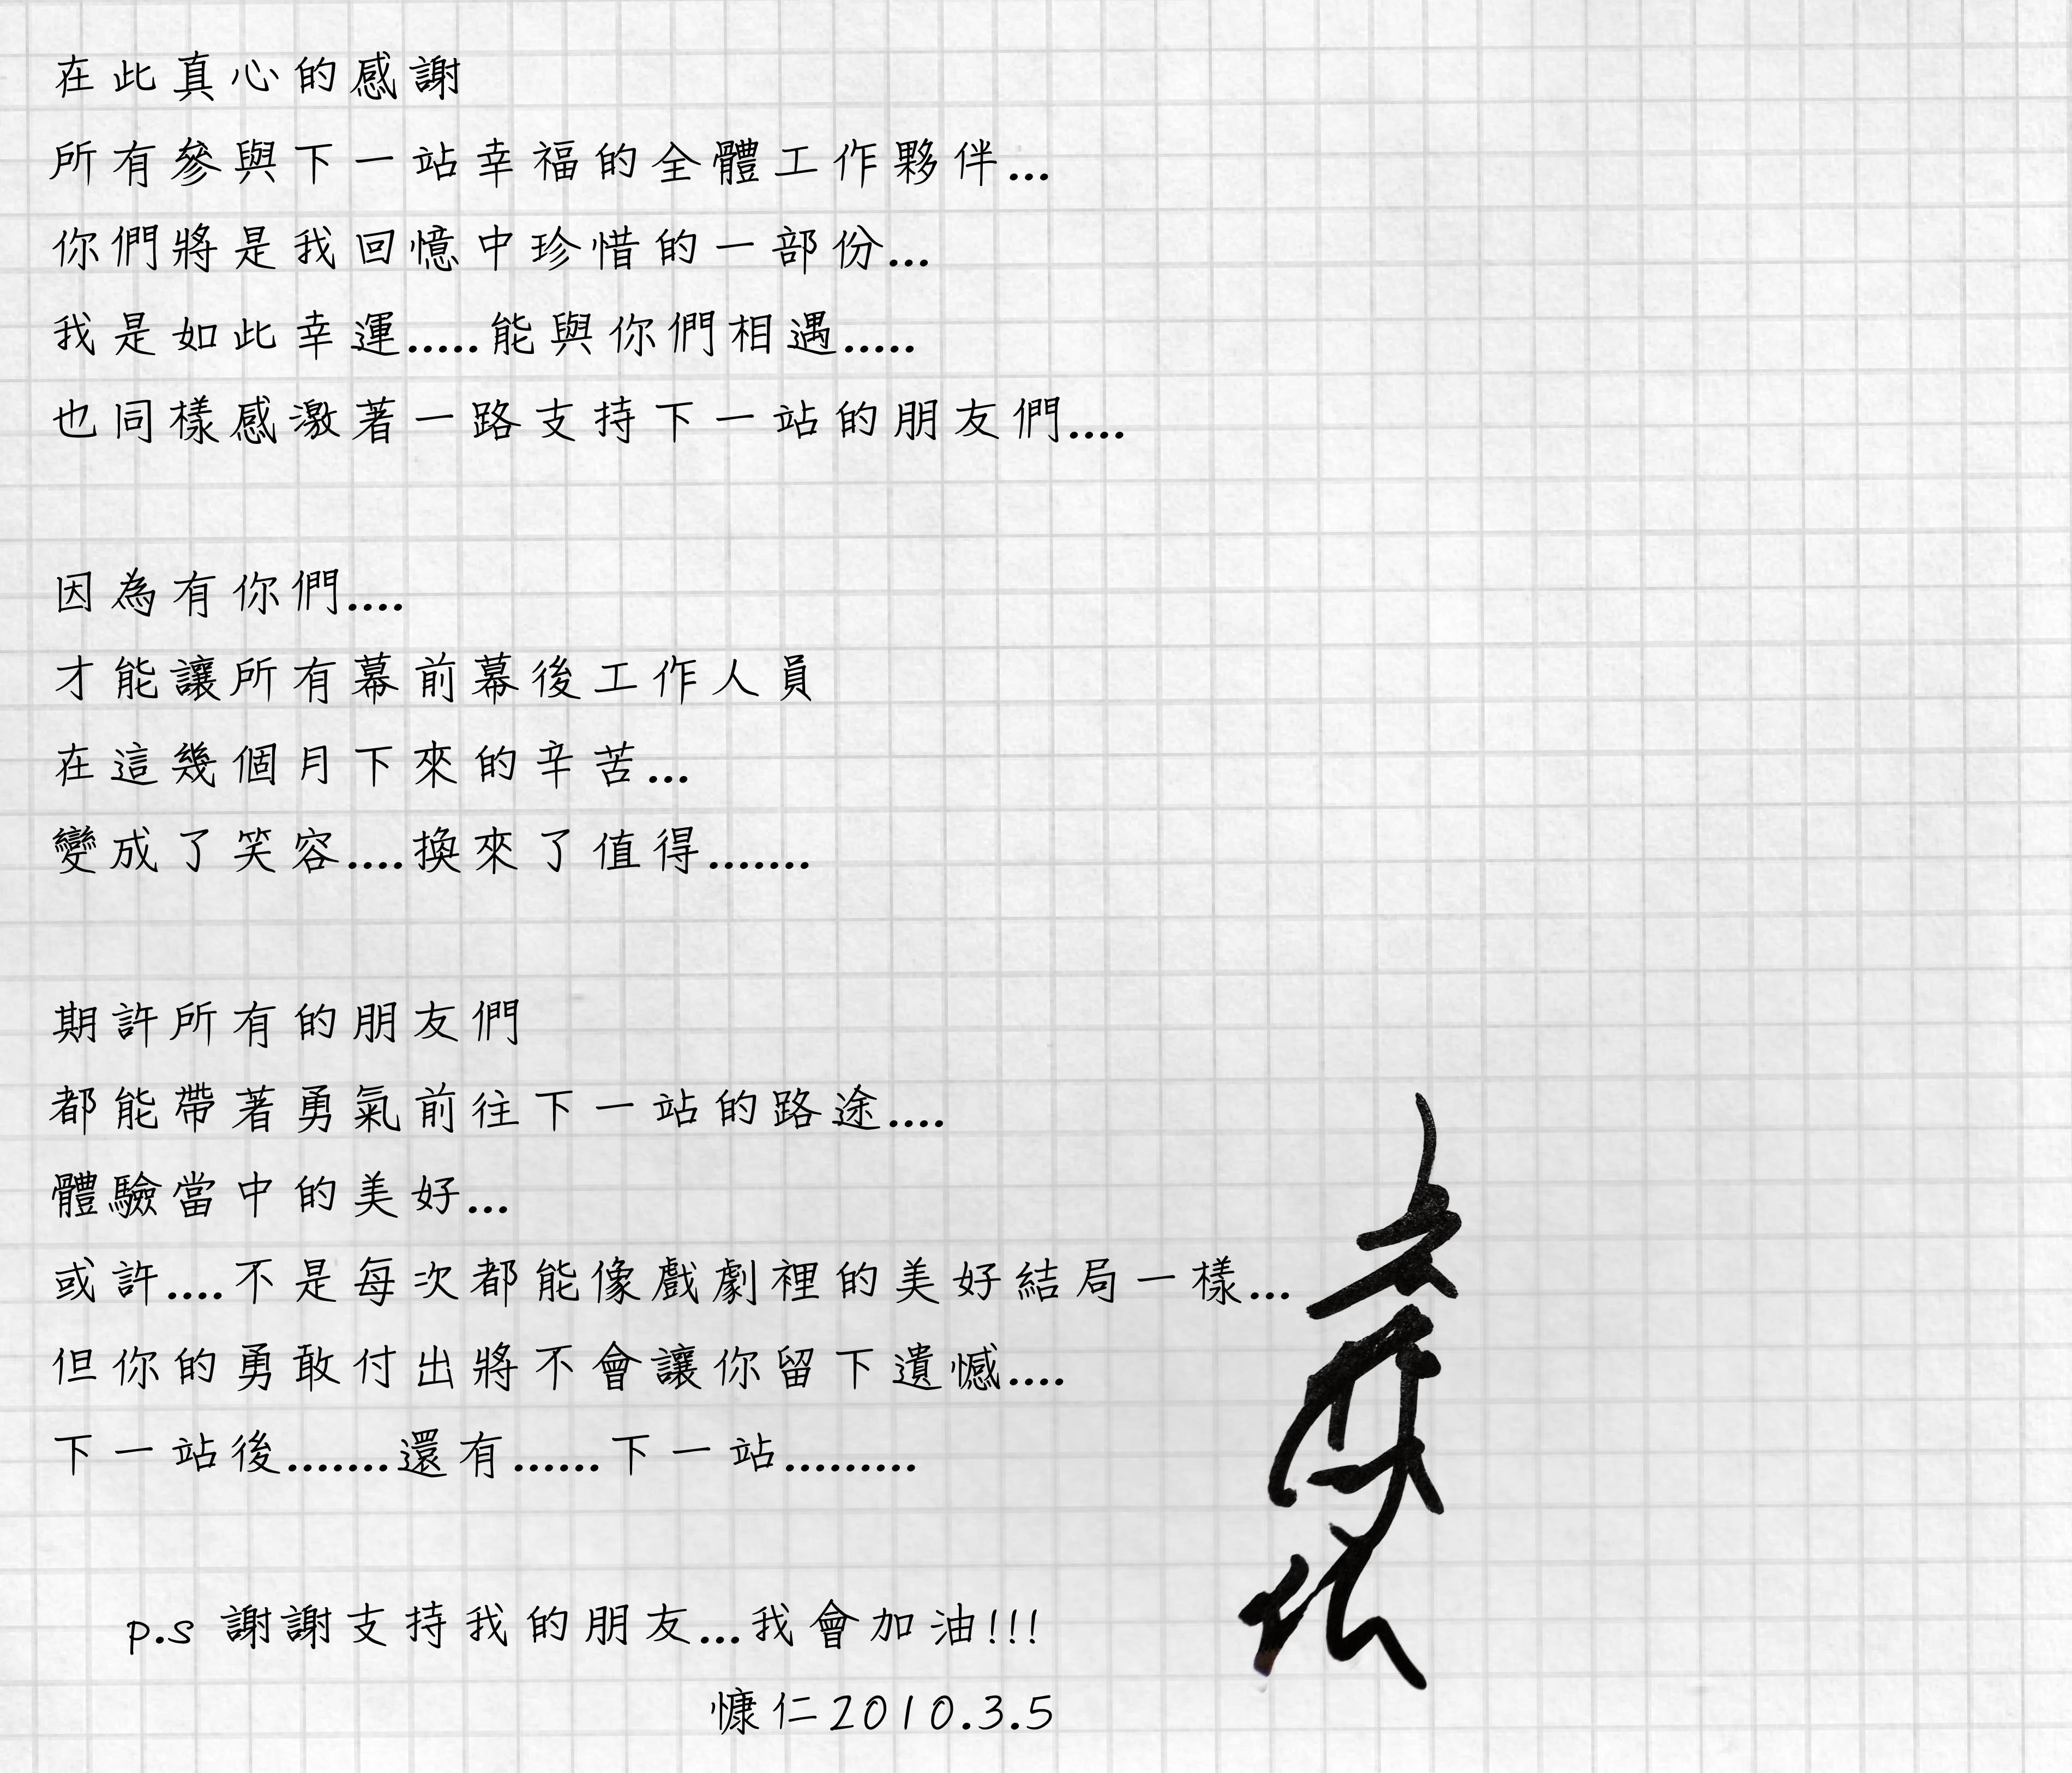 在此真心的感謝
所有參與下一站幸福的全體工作夥伴...
你們將是我回憶中珍惜的一部份...
我是如此幸運.....能與你們相遇.....
也同樣感激著一路支持下一站的朋友們....
因為有你們....
才能讓所有幕前幕後工作人員
在這幾個月下來的辛苦...
變成了笑容....換來了值得.......
期許所有的朋友們
都能帶著勇氣前往下一站的路途....
體驗當中的美好...
或許....不是每次都能像戲劇裡的美好結局一樣...
但你的勇敢付出將不會讓你留下遺憾....
下一站後.......還有......下一站.........
p.s 謝謝支持我的朋友...我會加油!!!
慷仁2010.3.5